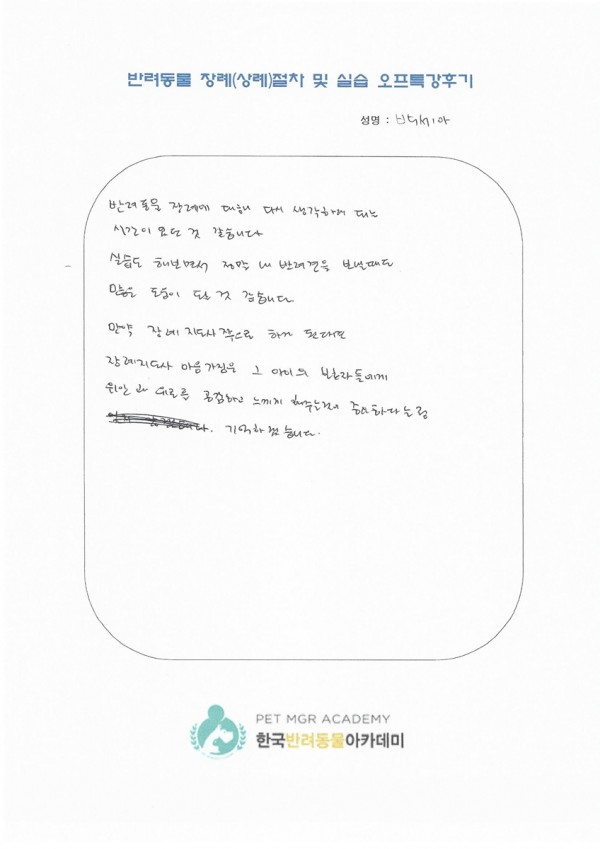 반려동물 장례(상례)절차 및 실습 오프특강후기
성명 :
반려동물 장례에 대해 다시 생각하게 되는
시간이 모던 것 같습니다
실습도 해보면서 정말 내 반려견을 보낼때도
많은 도움이 될 것 같습니다
만약 장례지도사쪽으로 하게 된다면
장례지도사 마음가짐은 그 아이의 보호자들에게
위안과 위로를 공감하고 느끼게 해주는것이 중요하다는걸
기억하겠습니다.
PET MGR ACADEMY
한국반려동물아카데미